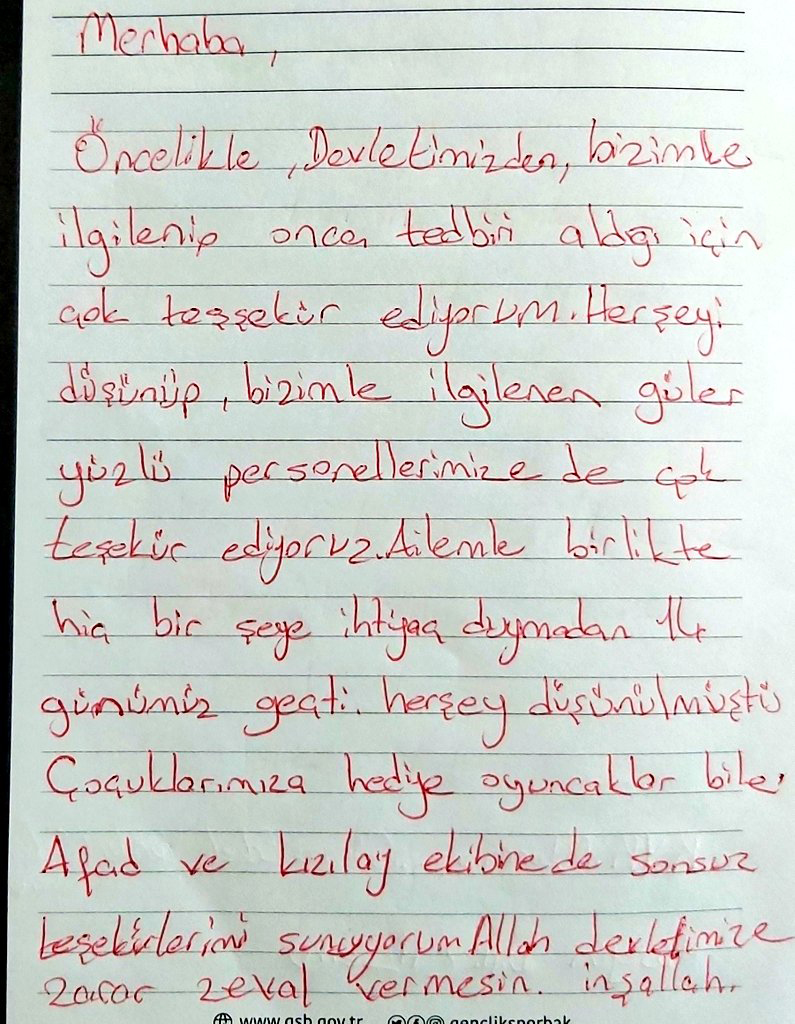 Merhaba,
Öncelikle, Devletimizden, bizimle
ilgilenip önce tedbiri aldığı için
çok teşşekür ediyorum. Herşeyi
düşünüp, bizimle ilgilenen güler
yüzlü personellerimize de çok
teşekür ediyoruz. Ailemle birlikte
hiç bir şeye ihtiyaç duymadan 14
günümüz geçti. herşey düşünülmüştü
Çoçuklarımıza hediye oyuncaklar bile.
Afad ve kızılay ekibine de sonsuz
teşekürlerimi sunuyorum Allah devletimize
zarar zeval vermesin. inşallah.
www.gsb.gov.tr gencliksporbak